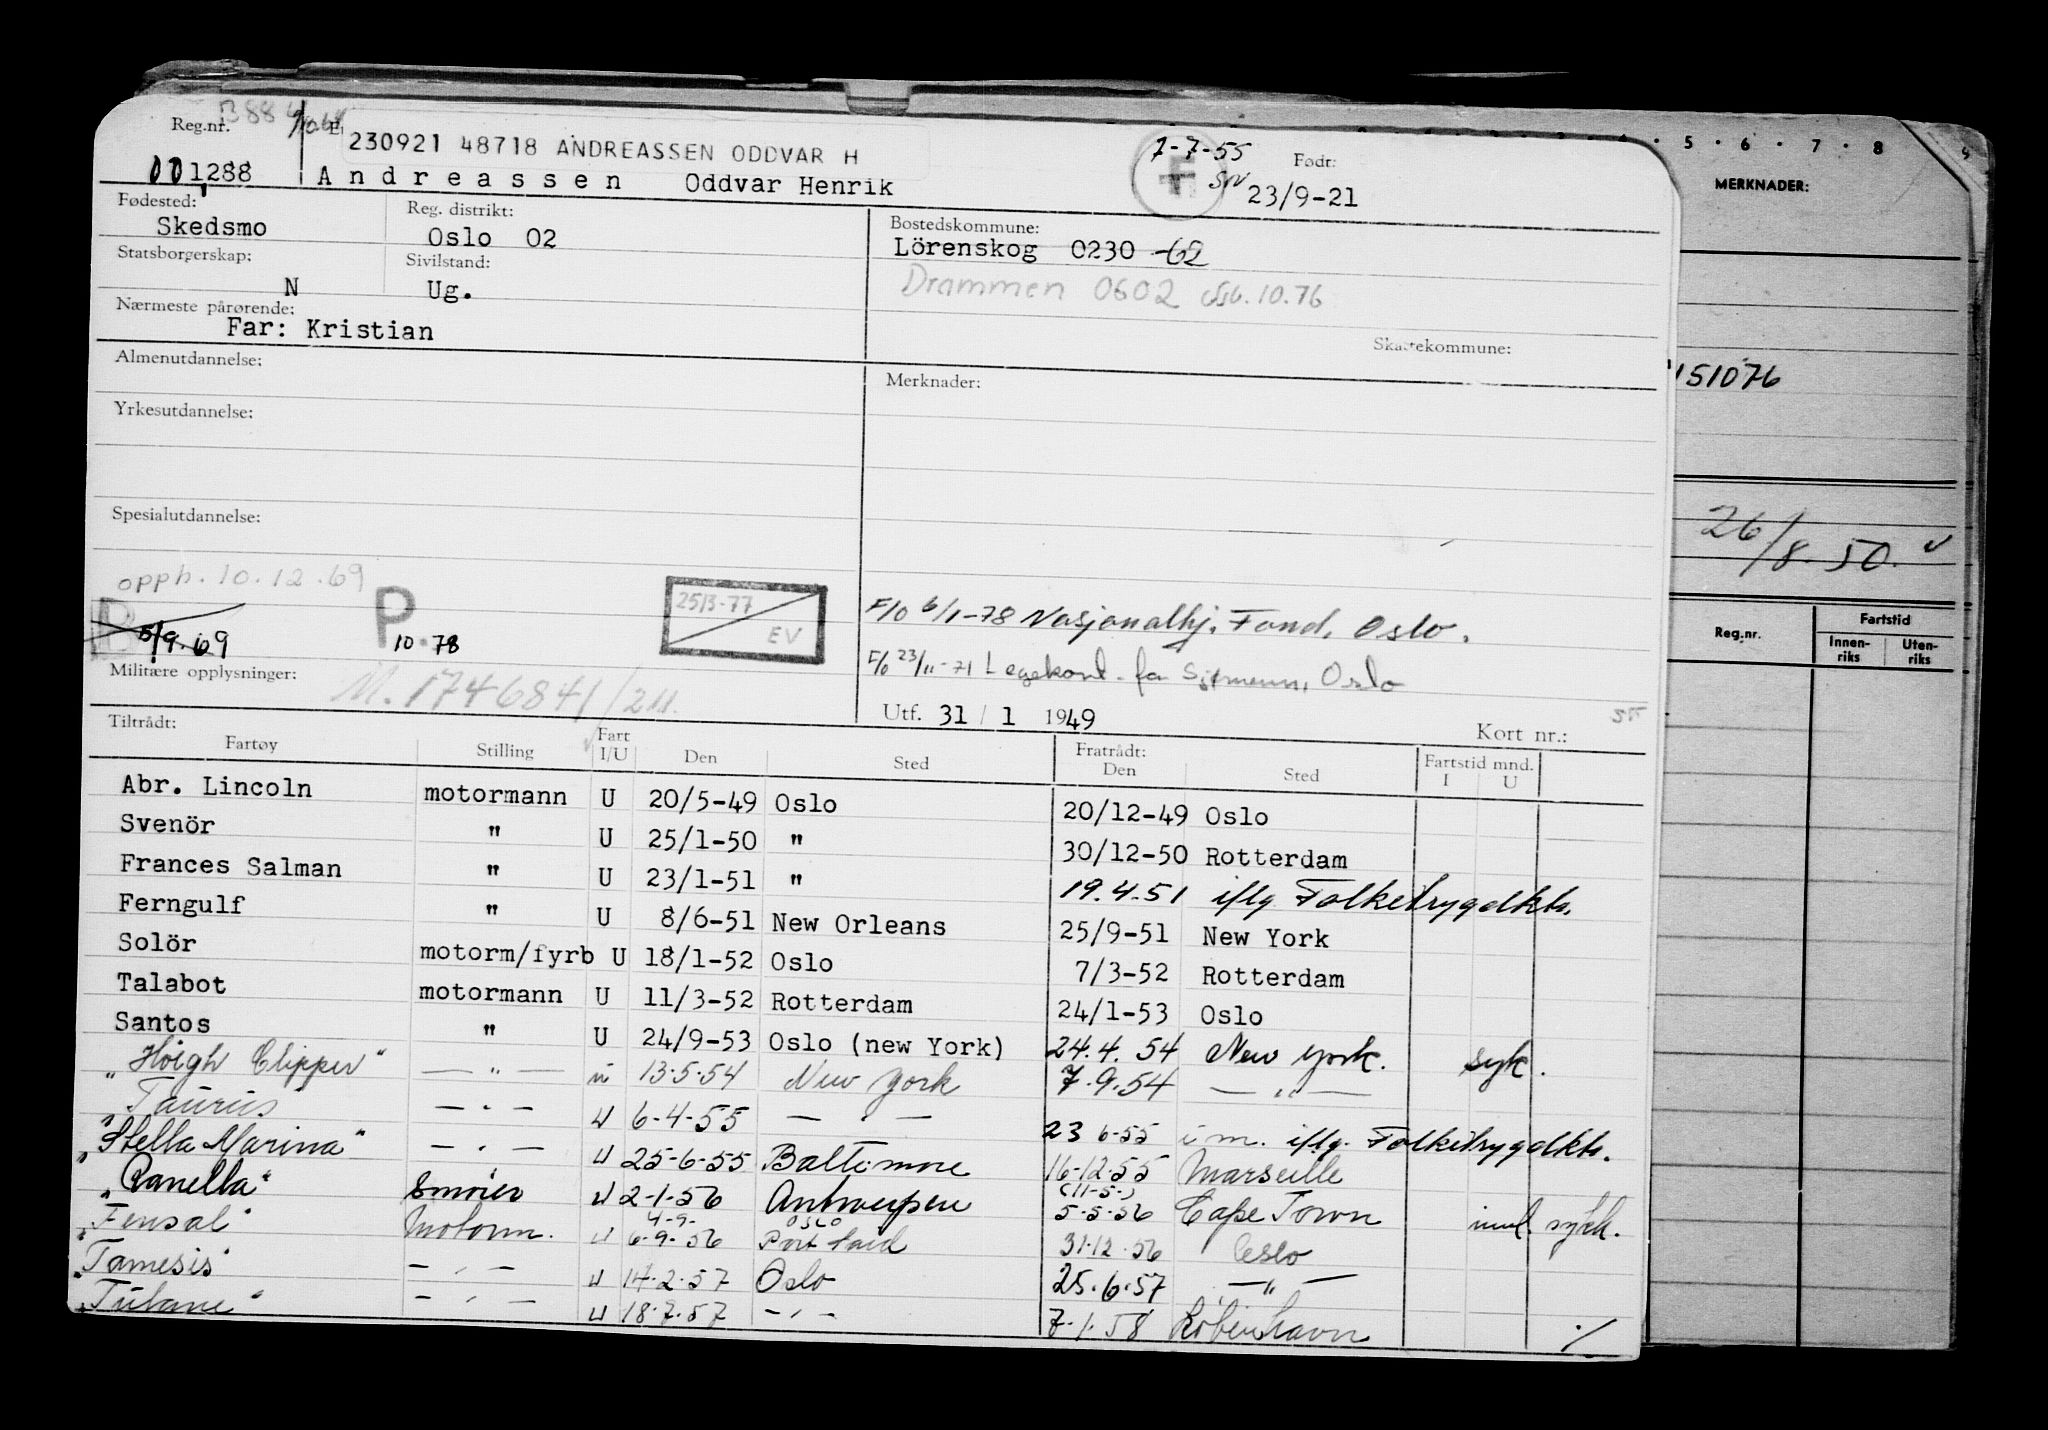 B884
Reg.nr.
230921 48718 ANDREASSEN ODDVAR H
7-7-55
Født:
001288
Andreassen Oddvar Henrik
23/9-21
Fødested:
Skedsmo
Reg. distrikt:
Oslo 02
Bostedskommune:
Lörenskog 0230 -62
Statsborgerskap:
N
Sivilstand:
Ug.
Drammen 0602 10.76
Nærmeste pårørende:
Far: Kristian
Skattekommune:
Almenutdannelse:
Merknader:
Yrkesutdannelse:
Spesialutdannelse:
opph. 10.12.69
B 5/9.69
P. 10 78
25/3-77
EV
F/0 6/1-78 Nasjonalhj. Fond, Oslo.
F/0 23/11-71 Legekont. for Sjømenn, Oslo
Militære opplysninger:
M. 1746841/211.
Utf. 31 / 1 1949
Kort nr.:
Tiltrådt:
Fartøy Stilling Fart I/U Den Sted Fratrådt: Den Sted Fartstid mnd. I U
Abr. Lincoln motormann U 20/5-49 Oslo 20/12-49 Oslo
Svenör " U 25/1-50 " 30/12-50 Rotterdam
Frances Salman " U 23/1-51 " 19.4.51 iflg Folketrygdkts.
Ferngulf " U 8/6-51 New Orleans 25/9-51 New York
Solör motorm/fyrb U 18/1-52 Oslo 7/3-52 Rotterdam
Talabot motormann U 11/3-52 Rotterdam 24/1-53 Oslo
Santos " U 24/9-53 Oslo (new York) 24.4.54 New York. syk.
"Høigh Clipper" — " — u 13.5.54 New York 7.9.54 — " —
"Taurus — " — U 6-4-55 — " — 23 6-55 i m. iflg. Folketrygdkts.
"Stella Marina" — " — U 25-6-55 Baltimore 16-12-55 Marseille
"Ranella" Smører U 2-1-56 Antwerpen (11-5-) 5-5-56 Cape Town innl. sykh.
"Fensal" Motorm. U 4-9- 6-9-56 Oslo Port Said 31.12.56 Oslo
"Tamesis" — " — U 14-2-57 Oslo 25.6.57 — " —
"Tubane" — " — U 18-7-57 — " — 7.1.58 København ./
5 · 6 · 7 · 8
MERKNADER:
151076
26/8.50.
Reg.nr.
Fartstid
Innen-riks
Uten-riks